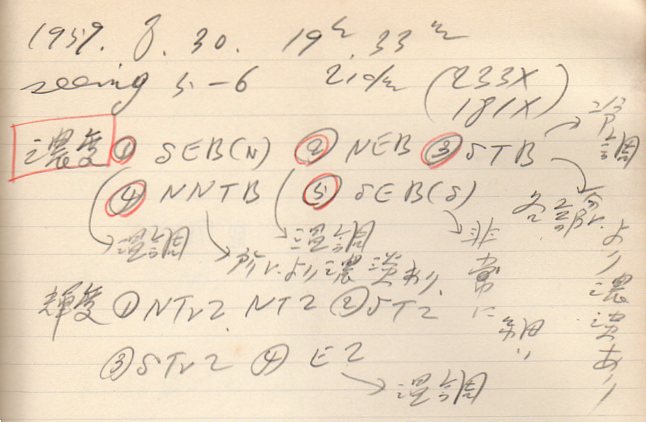 1959. 8. 30. 19h. 33m
seeing 5-6 21cm (233X
181X)
濃度 ① SEB(N) ② NEB ③ STB
④ NNTB ⑤ SEB(S)
温調
温調
所により濃淡あり
非常に細い
より濃淡あり
輝度 ① NTrZ. NTZ ② STZ
③ STrZ ④ EZ
温調